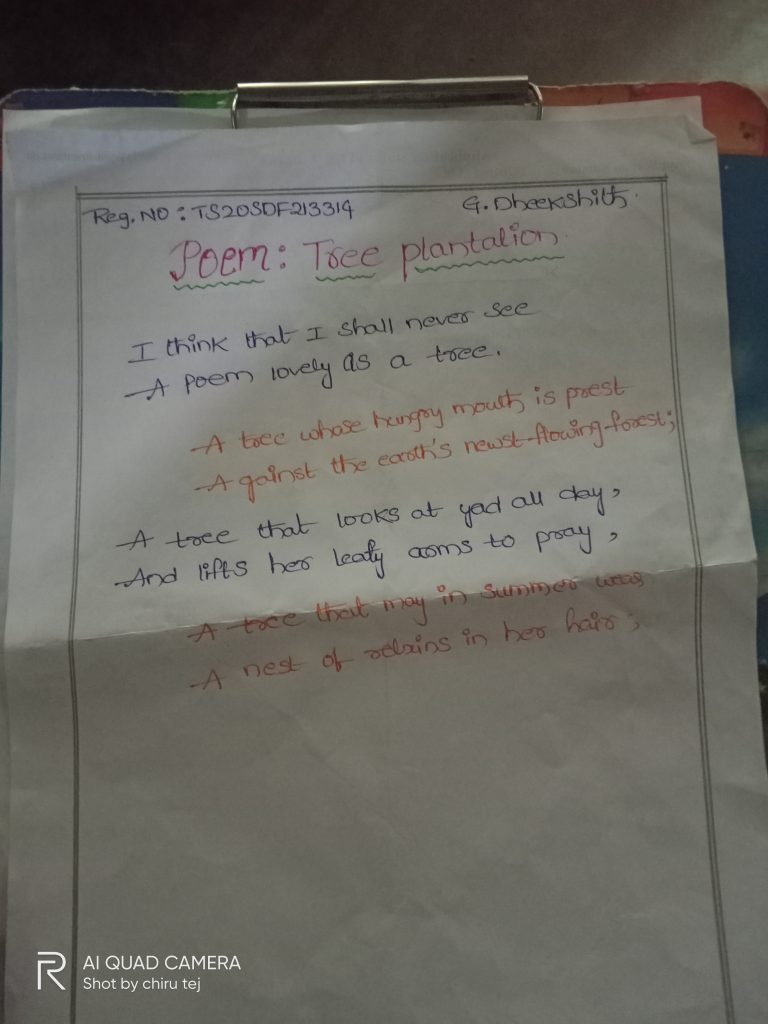 Reg. NO : TS20SDF213314
G. Dheekshith
Poem: Tree plantation
I think that I shall never see
A poem lovely as a tree.
A tree whose hungry mouth is prest
Against the earth's newst-flowing-forest;
A tree that looks at yad all day,
And lifts her leafy arms to pray,
A tree that may in summer wear
A nest of in her hair;
AI QUAD CAMERA
Shot by chiru tej